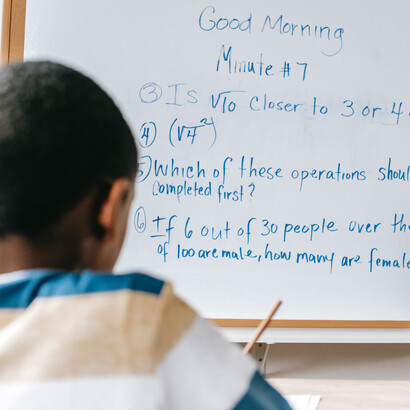 Good Morning
Minute #7
③ Is √10 closer to 3 or 4
④ (√4²)
5) Which of these operations shoul
completed first?
⑥ If 6 out of 30 people over the
of 100 are male, how many are female